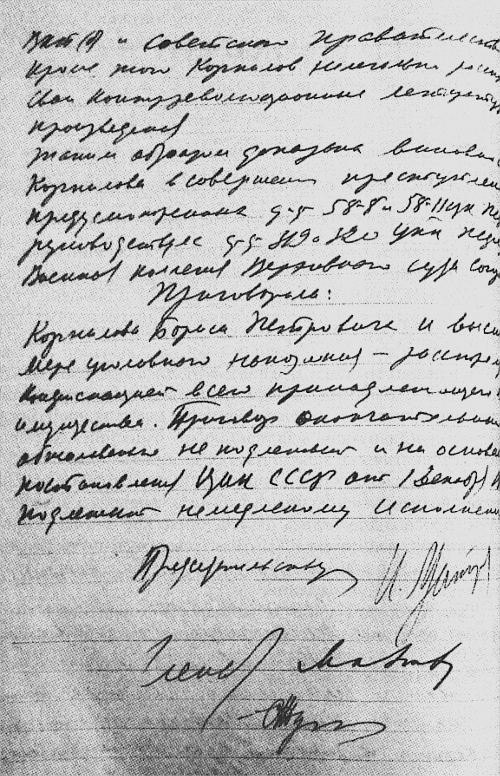 ВКП(б) и советского правительств
Кроме того Корнилов нелегально рас
свои контрреволюционные литератур
произведения
Таким образом доказана винов
Корнилова в совершении преступлен
предусмотренных ст.ст. 58-8 и 58-11 УК
руководствуясь ст.ст. 319 и 320 УПК
Военная коллегия Верховного суда Сою
Приговорила:
Корнилова Бориса Петровича к выс
мере уголовного наказания – расстре
конфискацией всего принадлежащего
имущества. Приговор окончательны
обжалованию не подлежит и на основа
постановления ЦИК СССР от 1 декабря
подлежит немедленному исполнени
Председательств
Члены